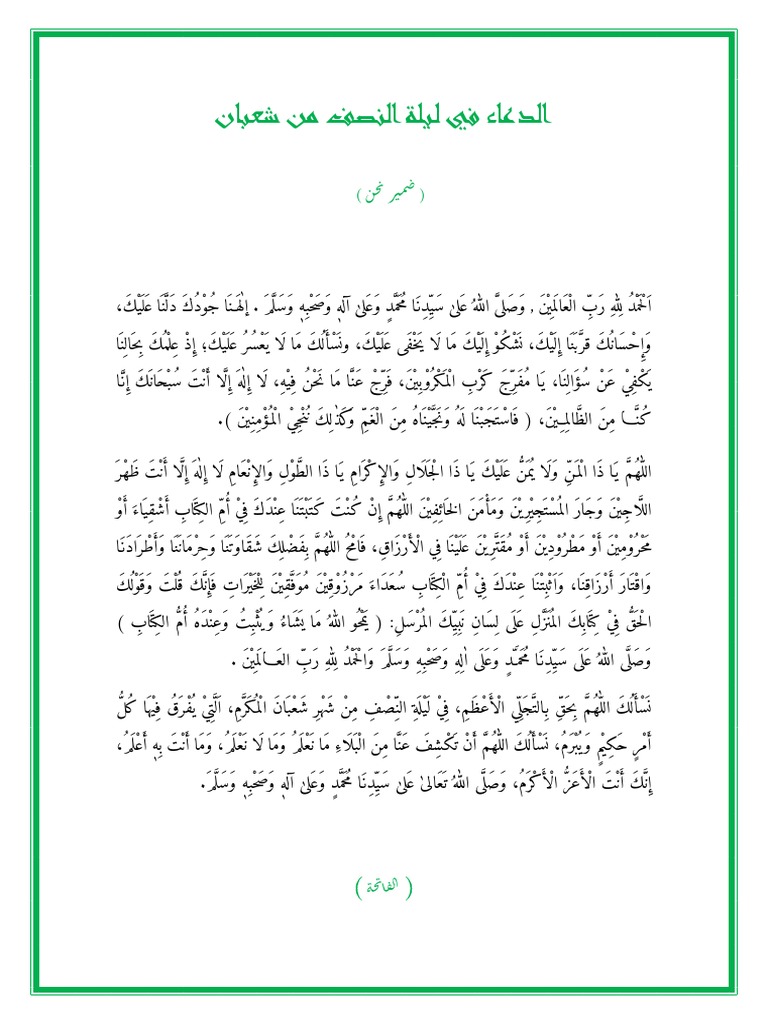 الدعاء في ليلة النصف من شعبان
( ضمير نحن )
اَلْحَمْدُ لِلهِ رَبِّ الْعَالَمِيْنَ , وَصَلَّى اللهُ عَلىٰ سَيِّدِنَا مُحَمَّدٍ وَعَلىٰ آلهٖ وَصَحْبِهٖ وَسَلَّمَ . إِلٰهَنَا جُوْدُكَ دَلَّنَا عَلَيْكَ،
وَإِحْسَانُكَ قَرَّبَنَا إِلَيْكَ، نَشْكُوْ إِلَيْكَ مَا لَا يَخْفَى عَلَيْكَ، ونَسْأَلُكَ مَا لَا يَعْسُرُ عَلَيْكَ؛ إِذْ عِلْمُكَ بِحَالِنَا
يَكْفِيْ عَنْ سُؤَالِنَا، يَا مُفَرِّجَ كَرْبِ الْمَكْرُوْبِيْنَ، فَرِّجْ عَنَّا مَا نَحْنُ فِيْهِ، لَا إِلٰهَ إِلَّا أَنْتَ سُبْحَانَكَ إِنَّا
كُنَّـا مِنَ الظَّالِمِـيْنَ، ( فَاسْتَجَبْنَا لَهُ وَنَجَّيْنَاهُ مِنَ الْغَمِّ وَكَذٰلِكَ نُنْجِيْ الْمُؤْمِنِيْنَ ).
اللهُمَّ يَا ذَا الْمَنِّ وَلَا يُمَنُّ عَلَيْكَ يَا ذَا الْجَلَالِ وَالإِكْرَامِ يَا ذَا الطَّوْلِ وَالإِنْعَامِ لَا إِلهَ إِلَّا أَنْتَ ظَهْرَ
اللَّاجِيْنَ وَجَارَ المُسْتَجِيْرِيْنَ وَمَأْمَنَ الخَائِفِيْنَ اللهُمَّ إِنْ كُنْتَ كَتَبْتَنَا عِنْدَكَ فِيْ أُمِّ الكِتَابِ أَشْقِيَاءَ أَوْ
مَحْرُوْمِيْنَ أَوْ مَطْرُوْدِيْنَ أَوْ مُقَتَّرِيْنَ عَلَيْنَا فِي الْأَرْزَاقِ، فَامْحُ اللهُمَّ بِفَضْلِكَ شَقَاوَتَنَا وَحِرْمَانَنَا وَأَطْرَادَنَا
وَاقْتَارَ أَرْزَاقِنَا، وَاثْبِتْنَا عِنْدَكَ فِيْ أُمِّ الْكِتَابِ سُعَدَاءَ مَرْزُوْقِيْنَ مُوَفَّقِيْنَ لِلْخَيْرَاتِ فَإِنَّكَ قُلْتَ وَقَوْلُكَ
الْحَقُّ فِيْ كِتَابِكَ المُنَزَّلِ عَلَى لِسَانِ نَبِيِّكَ الْمُرْسَلِ: ( يَمْحُو اللهُ مَا يَشَاءُ وَيُثْبِتُ وَعِنْدَهُ أُمُّ الكِتَابِ )
وَصَلَّى اللهُ عَلَى سَيِّدِنَا مُحَمَّدٍ وَعَلَى اٰلِهِ وَصَحْبِهِ وَسَلَّمَ وَالْحَمْدُ لِلهِ رَبِّ العَـالَمِيْنَ .
نَسْأَلُكَ اللهُمَّ بِحَقِّ بِالتَّجَلِّي الْأَعْظَمِ، فِيْ لَيْلَةِ النِّصْفِ مِنْ شَهْرِ شَعْبَانَ الْمُكَرَّمِ، اَلَّتِيْ يُفْرَقُ فِيْهَا كُلُّ
أَمْرٍ حَكِيْمٍ وَيُبْرَمُ، نَسْأَلُكَ اللهُمَّ أَنْ تَكْشِفَ عَنَّا مِنَ الْبَلَاءِ مَا نَعْلَمُ وَمَا لَا نَعْلَمُ، وَمَا أَنْتَ بِهٖ أَعْلَمُ،
إِنَّكَ أَنْتَ الْأَعَزُّ الْأَكْرَمُ، وَصَلَّى اللهُ تَعَالىٰ عَلىٰ سَيِّدِنَا مُحَمَّدٍ وَعَلىٰ آلهٖ وَصَحْبِهٖ وَسَلَّمَ.
( الفاتحة )